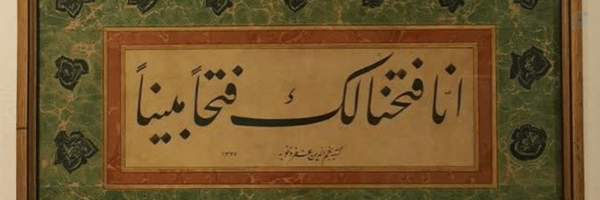 انا فتحنا لك فتحاً مبيناً